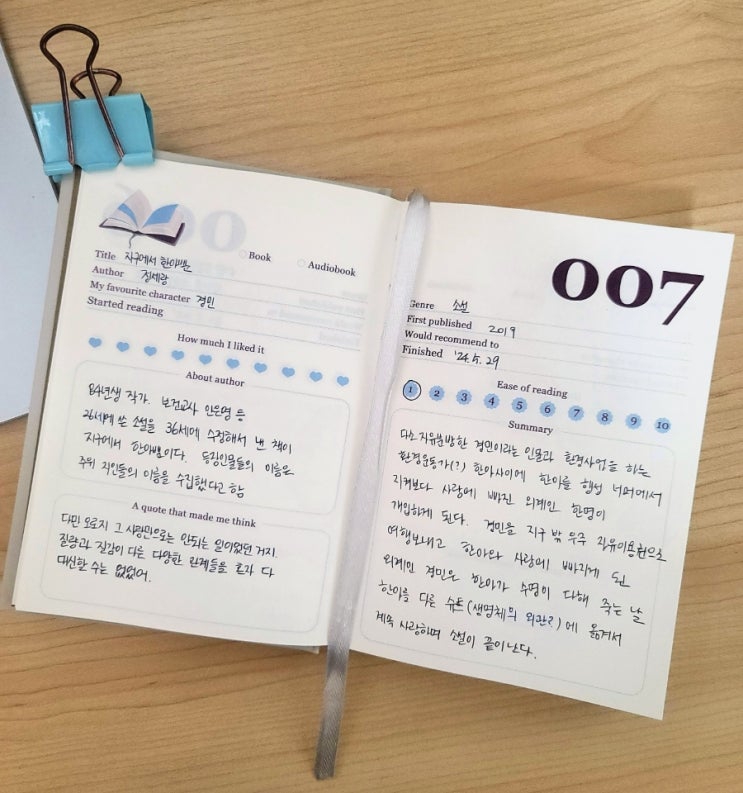 Book
Audiobook
Title 지구에서 한아뿐
Author 정세랑
My favourite character 경민
Started reading
How much I liked it
About author
84년생 작가. 보건교사 안은영 등
26세에 쓴 소설을 36세에 수정해서 낸 책이
지구에서 한아뿐이다. 등장인물들의 이름은
주위 지인들의 이름을 수집했다고 함
A quote that made me think
다만 오로지 그 사랑만으로는 안되는 일이었던 거지.
질량과 질감이 다른 다양한 관계들을 혼자 다
대신할 수는 없었어.
007
Genre 소설
First published 2019
Would recommend to
Finished '24. 5. 29
Ease of reading
1 2 3 4 5 6 7 8 9 10
Summary
다소 자유분방한 경민이라는 인물과 환경사업을 하는
환경운동가(?) 한아사이에 한아를 행성 너머에서
지켜보다 사랑에 빠진 외계인 한명이
개입하게 된다. 경민을 지구 밖 우주 자유이용권으로
여행보내고 한아와 사랑에 빠지게 된
외계인 경민은 한아가 수명이 다해 죽는 날
한아를 다른 슈트(생명체의 외관?)에 옮겨서
계속 사랑하며 소설이 끝이난다.